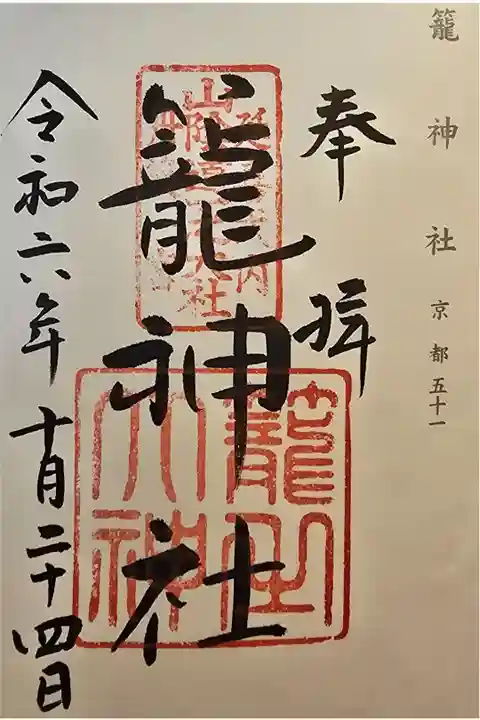 籠神社 京都五十一
奉拝
籠神社
令和六年十月二十四日